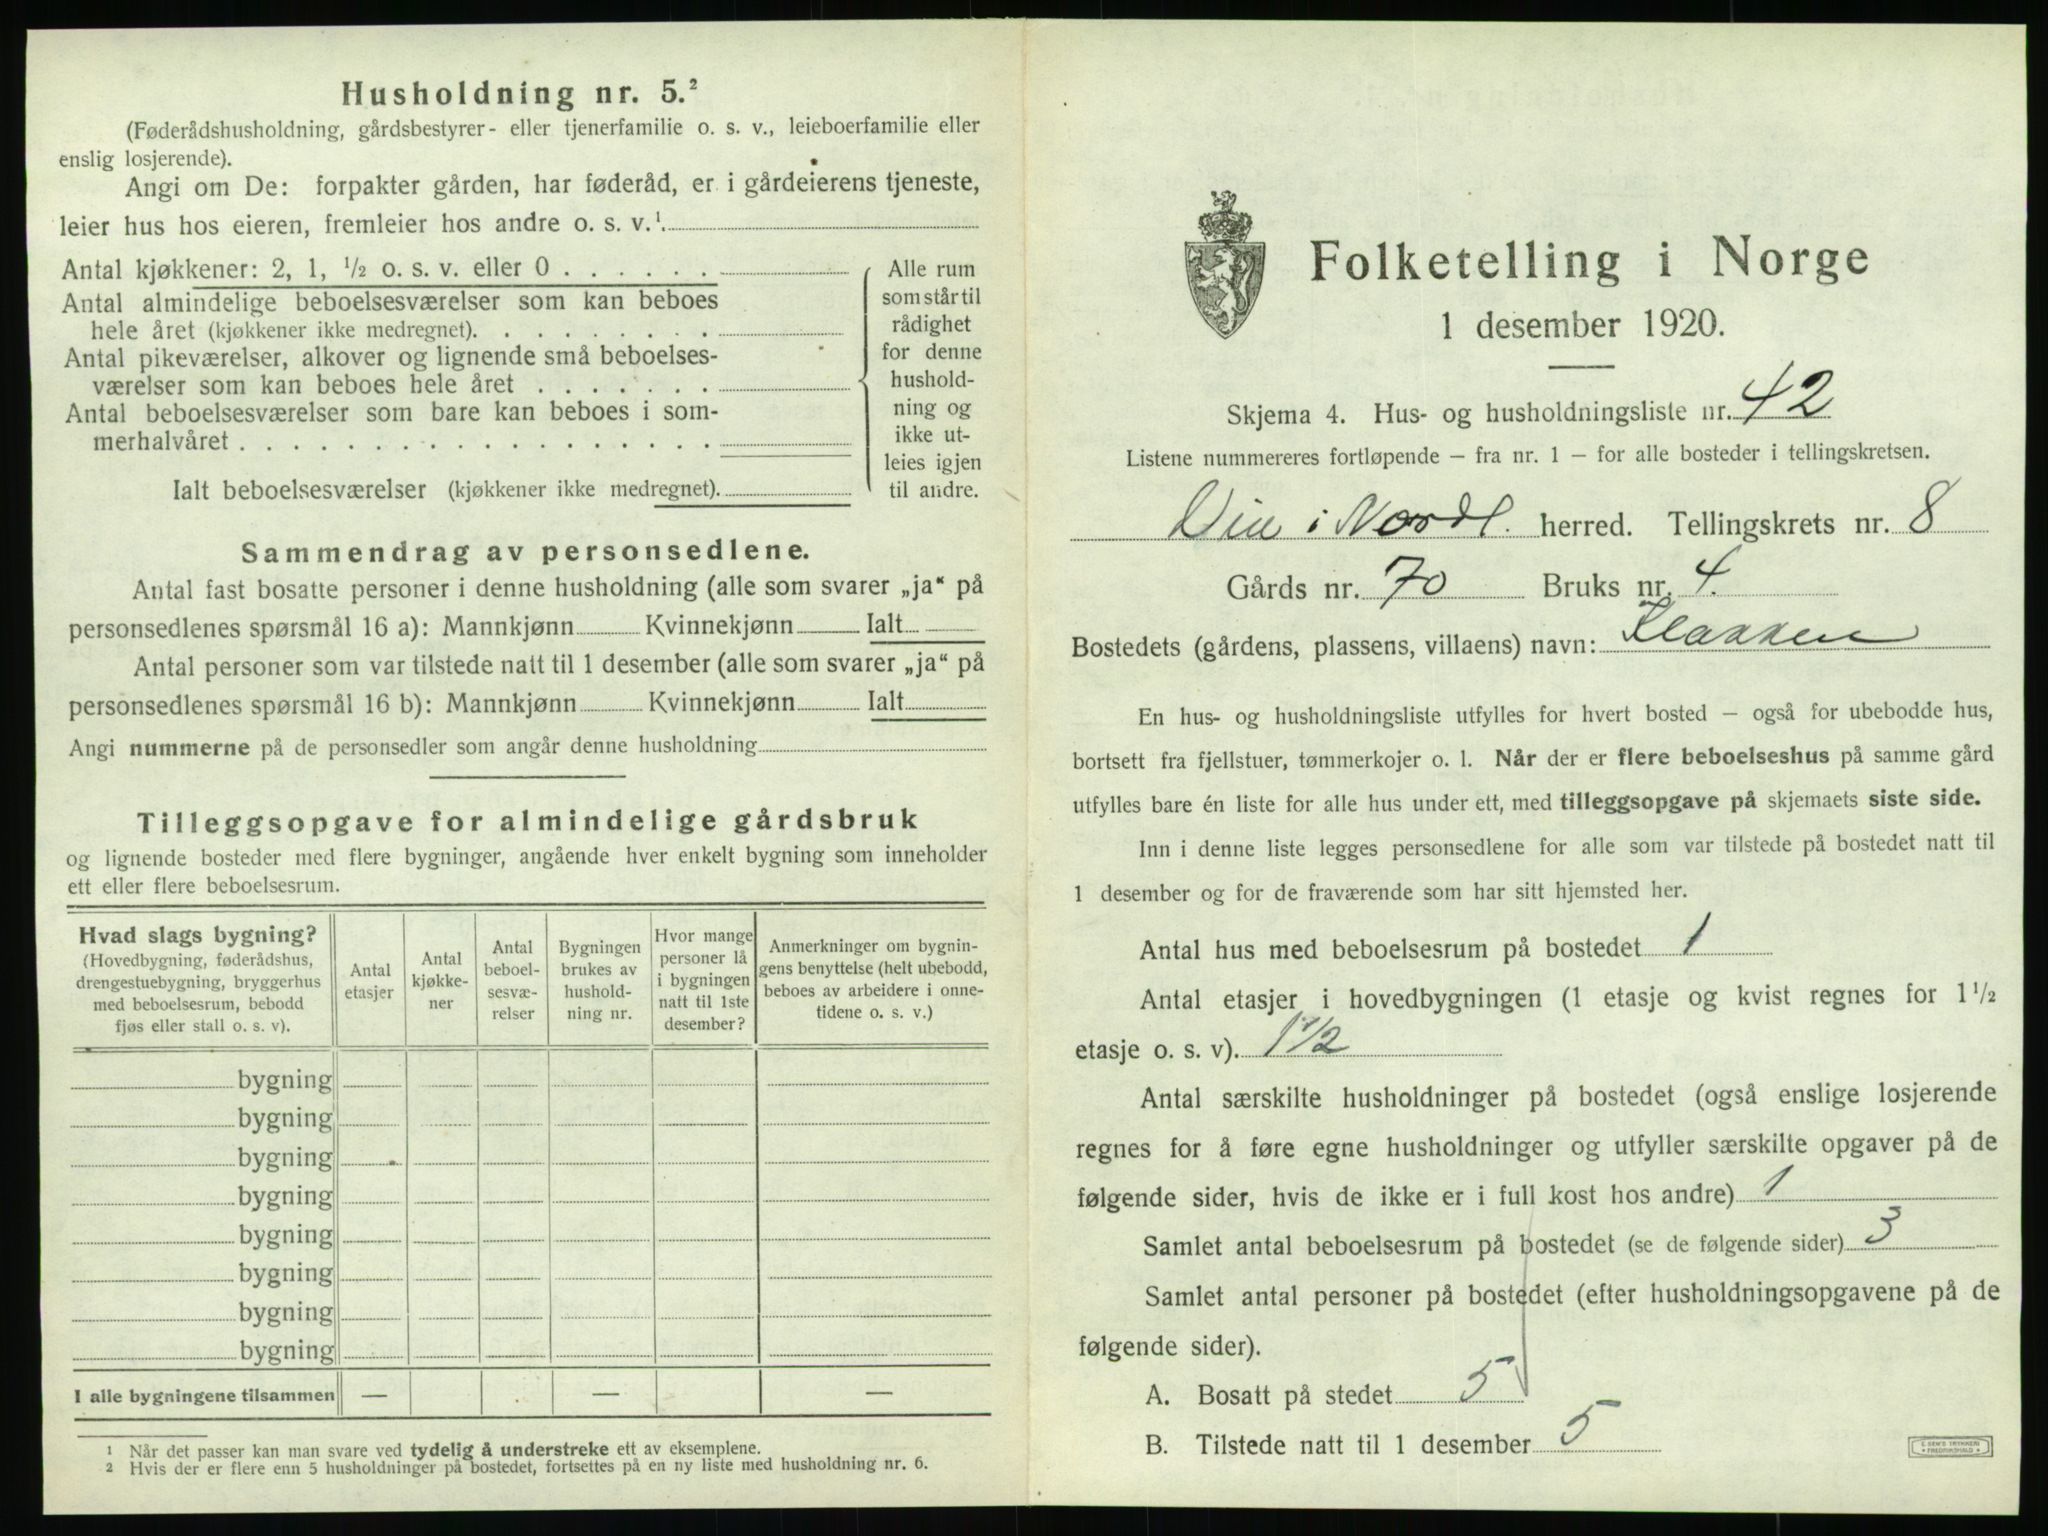 Husholdning nr. 5.²
(Føderådshusholdning, gårdsbestyrer- eller tjenerfamilie o. s. v., leieboerfamilie eller
enslig losjerende).
Angi om De: forpakter gården, har føderåd, er i gårdeierens tjeneste,
leier hus hos eieren, fremleier hos andre o. s. v.¹.
Antal kjøkkener: 2, 1, ½ o. s. v. eller 0 . . . . . .
Antal almindelige beboelsesværelser som kan beboes
hele året (kjøkkener ikke medregnet). . . . . . . . .
Antal pikeværelser, alkover og lignende små beboelses-
værelser som kan beboes hele året . . . . . . .
Antal beboelsesværelser som bare kan beboes i som-
merhalvåret . . . . . . . . . . . . . . . . . .
Ialt beboelsesværelser (kjøkkener ikke medregnet).
Alle rum
som står til
rådighet
for denne
hushold-
ning og
ikke ut-
leies igjen
til andre.
Sammendrag av personsedlene.
Antal fast bosatte personer i denne husholdning (alle som svarer „ja“ på
personsedlenes spørsmål 16 a): Mannkjønn Kvinnekjønn Ialt
Antal personer som var tilstede natt til 1 desember (alle som svarer „ja“ på
personsedlenes spørsmål 16 b): Mannkjønn Kvinnekjønn Ialt
Angi nummerne på de personsedler som angår denne husholdning
Tilleggsopgave for almindelige gårdsbruk
og lignende bosteder med flere bygninger, angående hver enkelt bygning som inneholder
ett eller flere beboelsesrum.
Hvad slags bygning?
(Hovedbygning, føderådshus,
drengestuebygning, bryggerhus
med beboelsesrum, bebodd
fjøs eller stall o. s. v).
Antal
etasjer
Antal
kjøkke-
ner
Antal
beboel-
sesvæ-
relser
Bygningen
brukes av
hushold-
ning nr.
Hvor mange
personer lå
i bygningen
natt til 1ste
desember?
Anmerkninger om bygnin-
gens benyttelse (helt ubebodd,
beboes av arbeidere i onne-
tidene o. s. v.)
bygning
bygning
bygning
bygning
bygning
bygning
bygning
bygning
I alle bygningene tilsammen — — —
¹ Når det passer kan man svare ved tydelig å understreke ett av eksemplene.
² Hvis der er flere enn 5 husholdninger på bostedet, fortsettes på en ny liste med husholdning nr. 6.
Folketelling i Norge
1 desember 1920.
Skjema 4. Hus- og husholdningsliste nr. 42
Listene nummereres fortløpende — fra nr. 1 — for alle bosteder i tellingskretsen.
i Nordl. herred. Tellingskrets nr. 8
Gårds nr. 70 Bruks nr. 4.
Bostedets (gårdens, plassens, villaens) navn: Klakken
En hus- og husholdningsliste utfylles for hvert bosted — også for ubebodde hus,
bortsett fra fjellstuer, tømmerkojer o. l. Når der er flere beboelseshus på samme gård
utfylles bare én liste for alle hus under ett, med tilleggsopgave på skjemaets siste side.
Inn i denne liste legges personsedlene for alle som var tilstede på bostedet natt til
1 desember og for de fraværende som har sitt hjemsted her.
Antal hus med beboelsesrum på bostedet 1
Antal etasjer i hovedbygningen (1 etasje og kvist regnes for 1½
etasje o. s. v). 1½
Antal særskilte husholdninger på bostedet (også enslige losjerende
regnes for å føre egne husholdninger og utfyller særskilte opgaver på de
følgende sider, hvis de ikke er i full kost hos andre) 1
Samlet antal beboelsesrum på bostedet (se de følgende sider) 3
Samlet antal personer på bostedet (efter husholdningsopgavene på de
følgende sider).
A. Bosatt på stedet 5
B. Tilstede natt til 1 desember 5
E. SEM'S TRYKKERI
FREDRIKSHALD